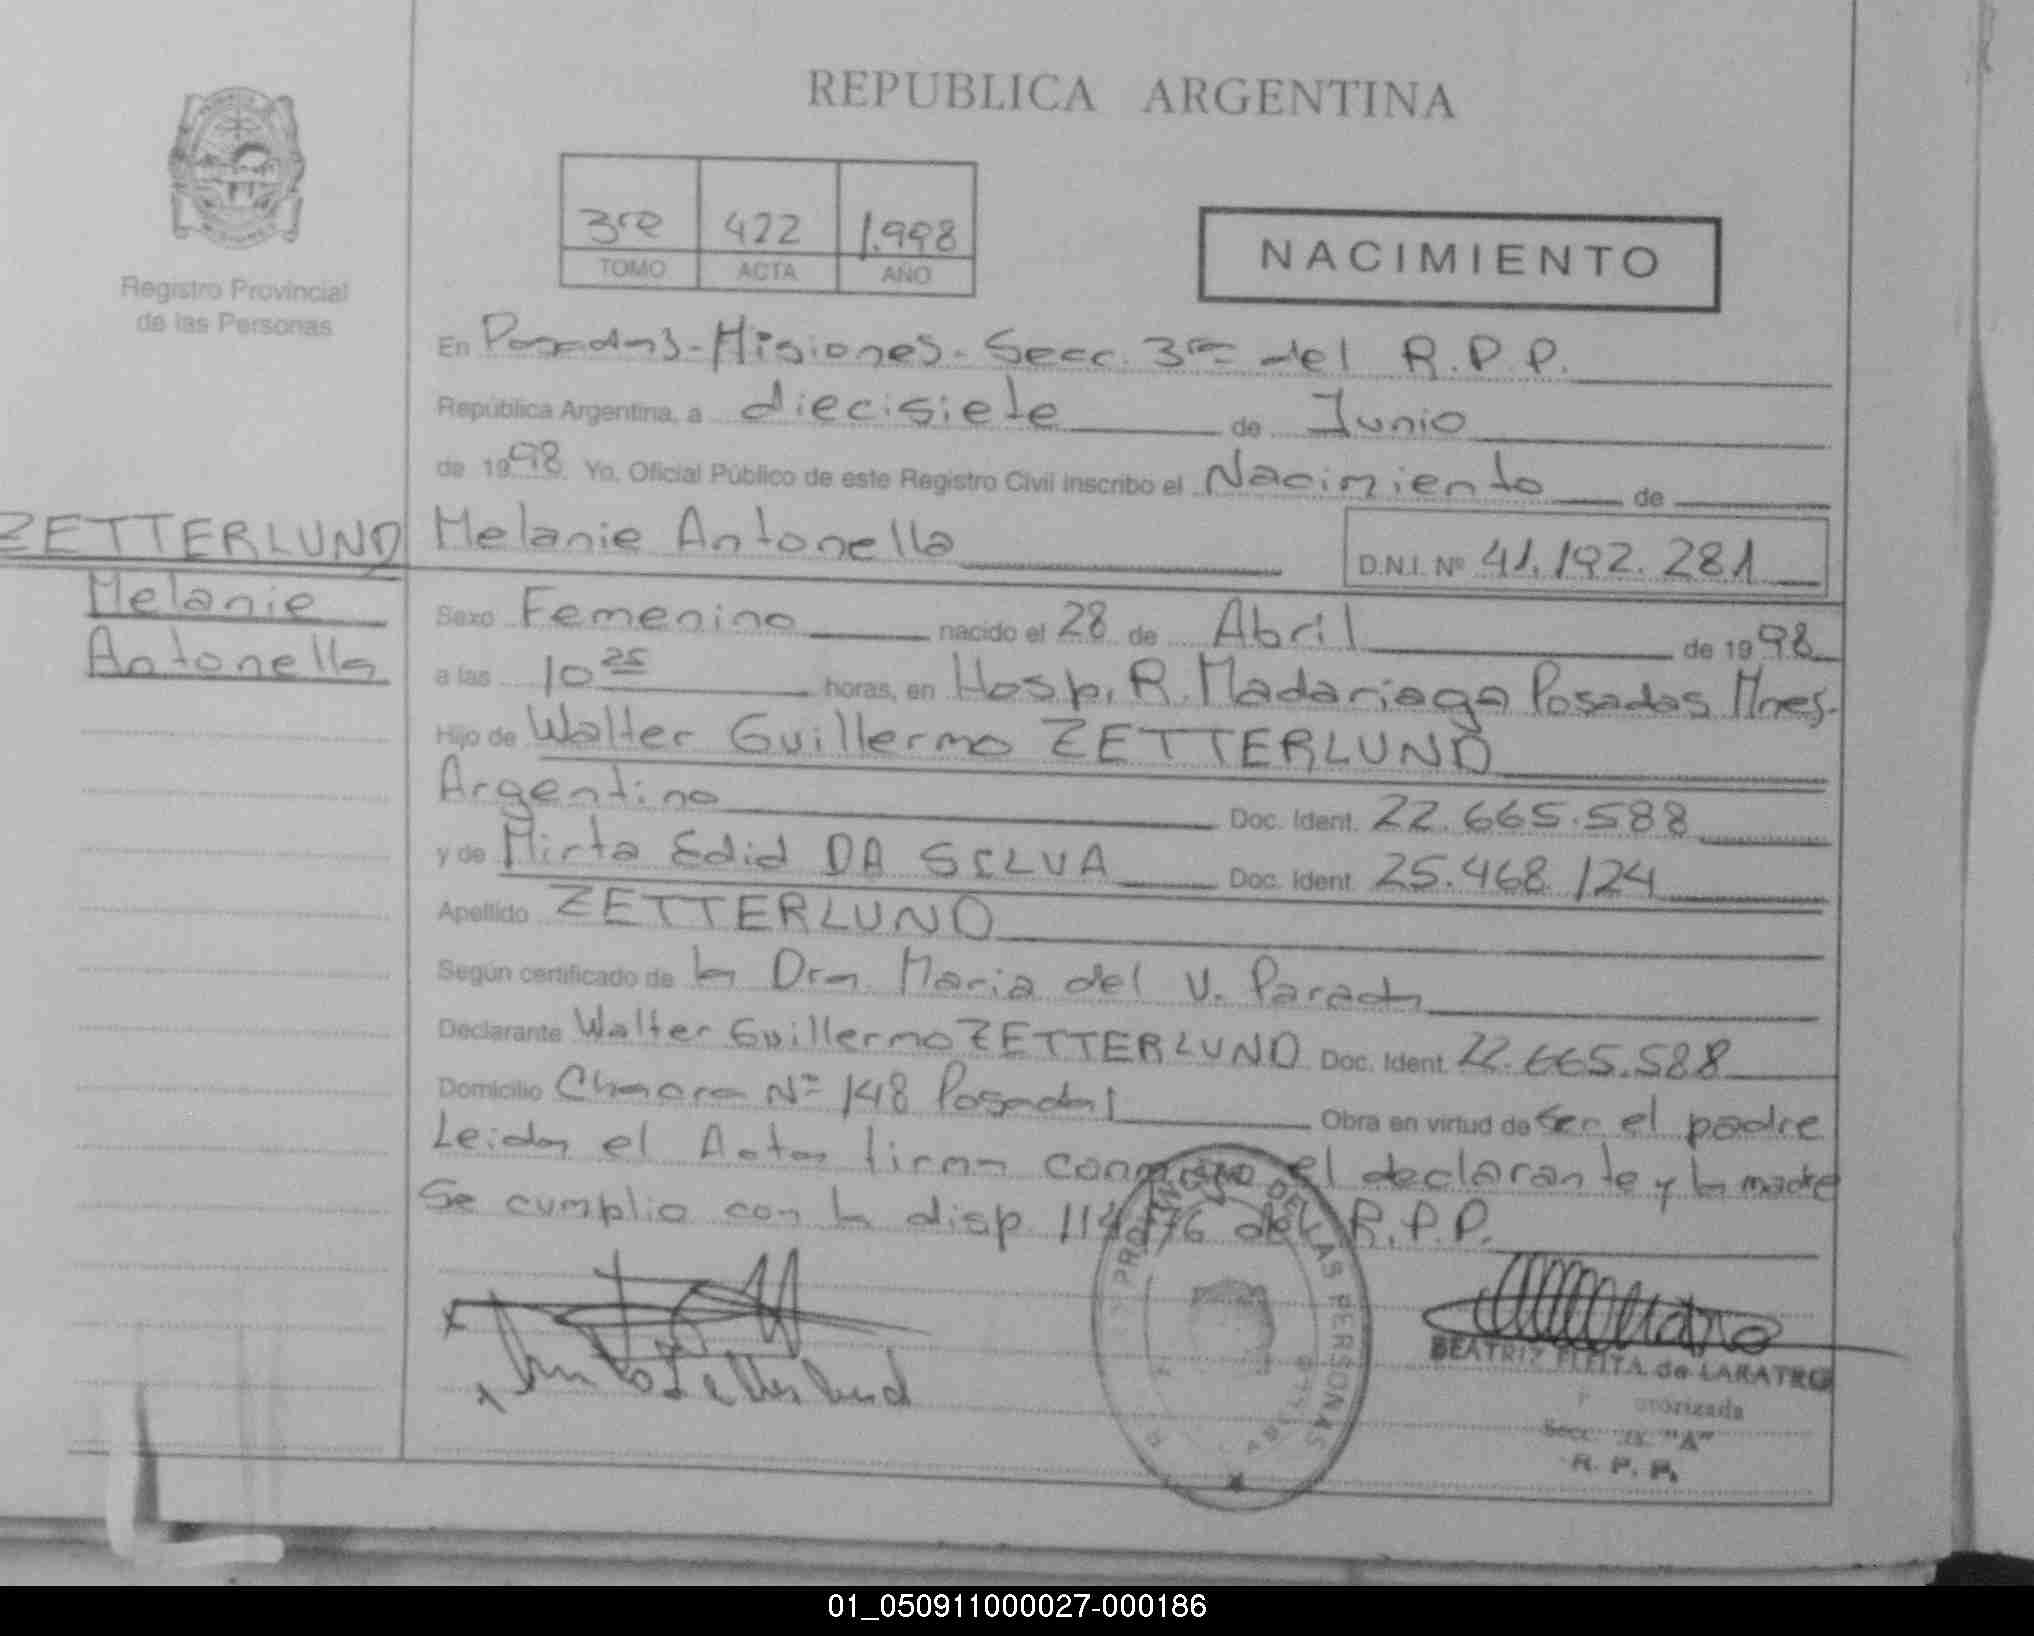 REPUBLICA ARGENTINA
Registro Provincial
de las Personas
3ra 422 1.998
TOMO ACTA AÑO
NACIMIENTO
En Posadas-Misiones-Secc. 3ra del R.P.P.
República Argentina, a diecisiete de Junio
de 1998 Yo, Oficial Público de este Registro Civil inscribo el Nacimiento de
ZETTERLUND
Melanie
Antonella
Melanie Antonella D.N.I. Nº 41.192.281
Sexo Femenino nacido el 28 de Abril de 1998
a las 10 25 horas, en Hosp. R. Madariaga Posadas Mnes.
Hijo de Walter Guillermo ZETTERLUND
Argentino Doc. Ident. 22.665.588
y de Mirta Edid DA SILVA Doc. Ident. 25.468.124
Apellido ZETTERLUND
Según certificado de la Dra. Maria del V. Parada
Declarante Walter Guillermo ZETTERLUND Doc. Ident. 22.665.588
Domicilio Chacra Nº 148 Posadas Obra en virtud de Ser el padre
Leida el Acta firma conmigo el declarante y la madre
Se cumplio con la disp. 114/76 del R.P.P.
PERSONAS
BEATRIZ FLEITA de LARATRO
Secc. "A"
R. P. P.
01_050911000027-000186